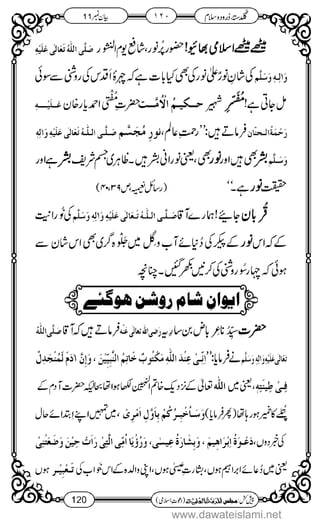 گلدستۂ درود و سلام ۱۲۰ بیان نمبر 11
میٹھے میٹھے اسلامی بھائیو! حضورِ پُرنور، شافعِ یومُ النشور صَلَّی اللہُ تَعَالٰی عَلَیْہِ
وَاٰلِہٖ وَسَلَّم کی شانِ نُورٌ عَلٰی نُور بھی کیا بات ہے کہ چہرۂ اَقدَس کی روشنی سے سوئی
مل جاتی ہے! مُفَسِّرِ شہیر حکیمُ الْاُمَّت حضرتِ مُفتی احمد یار خان عَلَیْہِ
رَحْمَۃُ الْحَنَّان فرماتے ہیں: ’’رحمتِ عالم، نورِ مُجَسَّم صَلَّی اللہُ تَعَالٰی عَلَیْہِ وَاٰلِہٖ
وَسَلَّم بشر بھی ہیں اور نور بھی، یعنی نورانی بشر ہیں۔ ظاہری جسم شریف بشر ہے اور
حقیقت نور ہے۔‘‘ (رسائلِ نعیمیہ، ص ۳۹، ۴۰)
قُربان جائیے! ہمارے آقا صَلَّی اللہُ تَعَالٰی عَلَیْہِ وَاٰلِہٖ وَسَلَّم کی نورانیت
کے کہ اس نور کے پیکر کی دُنیا میں آمد
ہوئی کہ چہار سُو روشنی کی کرنیں چنانچہ
ایوانِ شام روشن ہوگئے
حضرت سیِّدُنا عِرباض بن ساریہ رضی اللہ تعالٰی عنہ فرماتے ہیں کہ آقا صَلَّی اللہُ
تَعَالٰی عَلَیْہِ وَاٰلِہٖ وَسَلَّم نے فرمایا: ’’اِنِّیْ عِنْدَ اللہِ مَکْتُوْبٌ خَاتَمُ النَّبِیِّیْنَ، وَاِنَّ اٰدَمَ لَمُنْجَدِلٌ
فِیْ طِیْنَتِہٖ، یعنی میں اللہ تعالٰی کے نزدیک خاتم النبیین لکھا ہوا تھا حالانکہ حضرت آدم کے
پُتلے کا خمیر ہو رہا تھا (پھر فرمایا) وَسَاُخْبِرُکُمْ بِاَوَّلِ اَمْرِیْ، میں تمہیں اپنے ابتدائے حال
کی خبر دوں، دَعْوَۃُ اِبْرَاہِیْمَ، وَبِشَارَۃُ عِیْسٰی، وَرُؤْیَا اُمِّیَ الَّتِیْ رَاَتْ حِیْنَ وَضَعَتْنِیْ
یعنی میں دعائے ابراہیم ہوں، بشارتِ عیسٰی ہوں، اپنی والدہ کے اس خواب کی تعبیر ہوں
120
پیش کش: مجلس المدینۃ العلمیۃ (دعوتِ اسلامی)
www.dawateislami.net